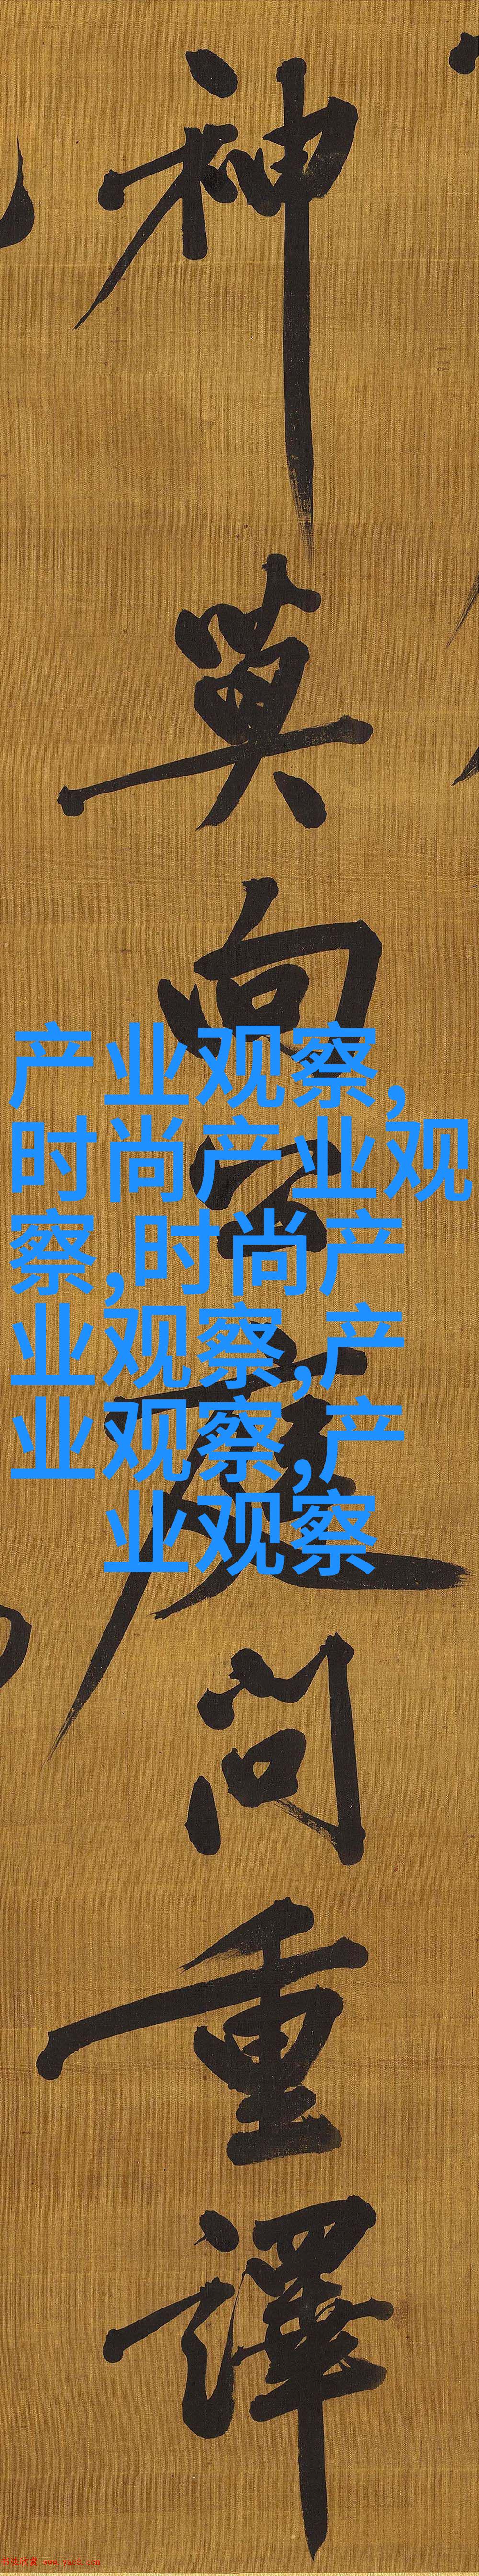 神莫向空庭問重譯
产业观察,
时尚产业观
察,时尚产
业观察,产
业观察,产
业观察